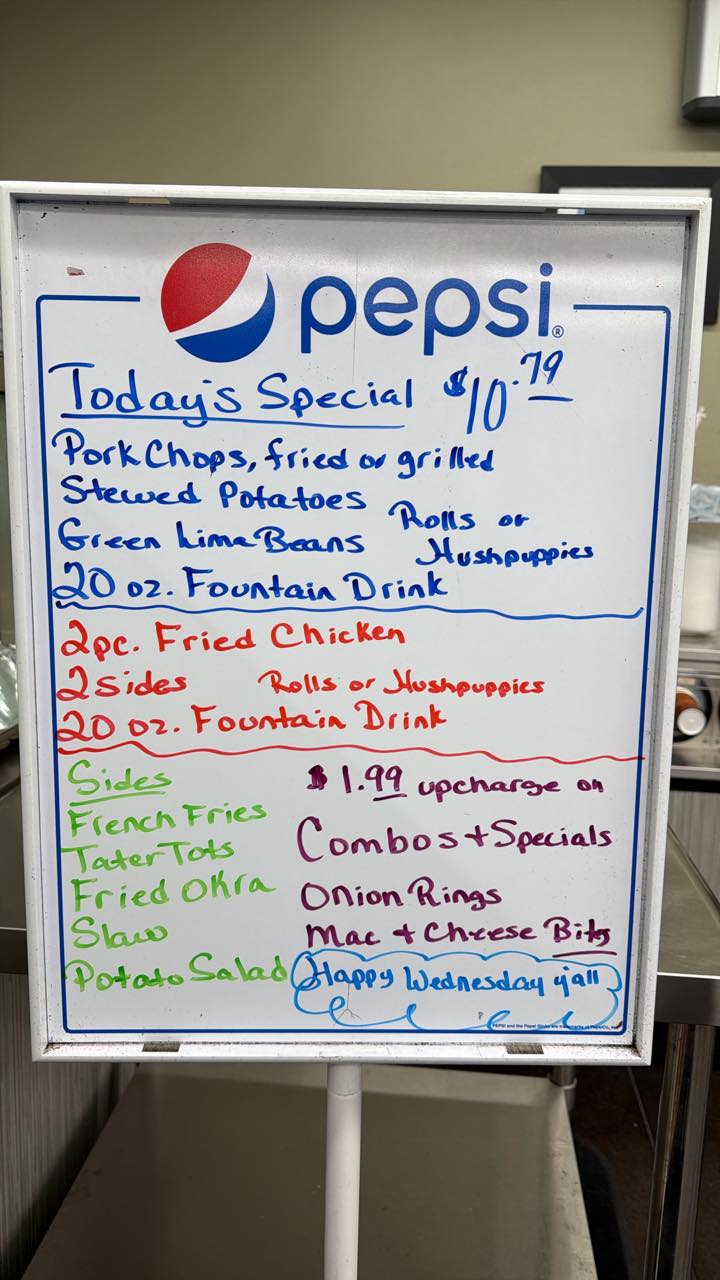 pepsi®
Today's Special $10.79
Pork Chops, fried or grilled
Stewed Potatoes
Green Lima Beans Rolls or Hushpuppies
20 oz. Fountain Drink
2pc. Fried Chicken
2 Sides Rolls or Hushpuppies
20 oz. Fountain Drink
Sides
French Fries
Tater Tots
Fried Okra
Slaw
Potato Salad
$1.99 upcharge on
Combos + Specials
Onion Rings
Mac + Cheese Bites
Happy Wednesday y'all